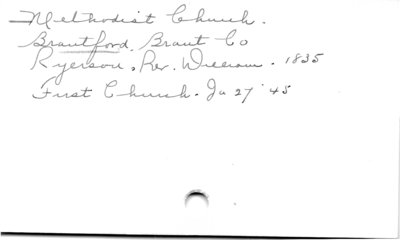 Methodist Church.
Brantford, Brant Co
Ryerson, Rev. William. 1835
First Church. Ja 27 '45